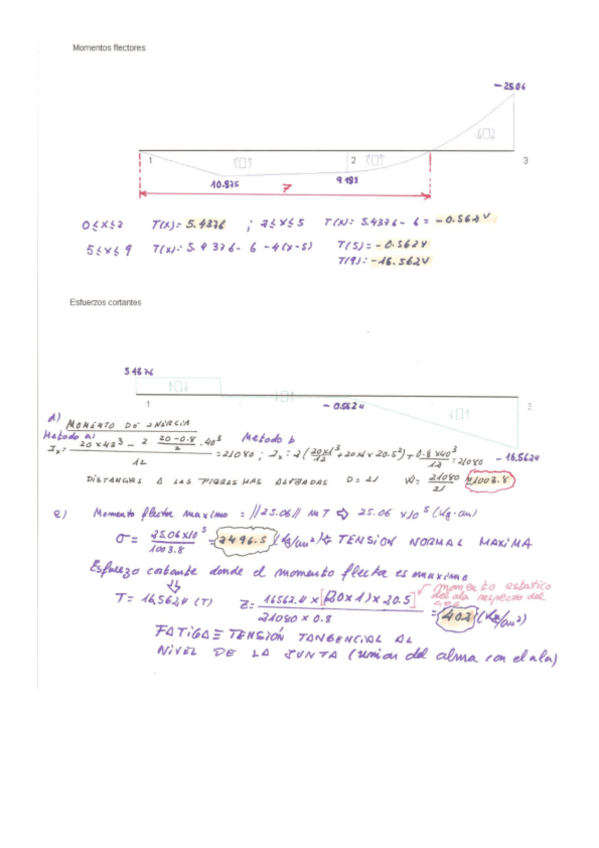 Momentos flectores
-25.06
1 2 3
10.875 9.185
7
0≤x≤2 T(x): 5.4376 ; 2≤x≤5 T(x): 5.4376 - 6 = -0.5624
5≤x≤9 T(x): 5.4376 - 6 - 4(x-5) T(5) = -0.5624
T(9): -16.5624
Esfuerzos cortantes
5.4376
1 -0.5624
-16.5624
d) MOMENTO DE INERCIA
Metodo a: Metodo b
Ix = (20×42³ - 2 (20-0.8)/2 · 40³)/12 = 21080 ; Ix = 2(20×1³/12 + 20×1×20.5²) + 0.8×40³/12 = 21080
DISTANCIAS A LAS FIBRAS MAS ALEJADAS D = 21 W = 21080/21 = 1003.8
e) Momento flector maximo = //25.06// MT ⇨ 25.06 ×10⁵ (Kg·cm)
σ = 25.06×10⁵/1003.8 = 2496.5 (Kg/cm²) TENSION NORMAL MAXIMA
Esfuerzo cortante donde el momento flecta es maximo
T = 16,562,4 (T) Z = 16562,4 × [(20×1)×20.5]/(21080 × 0.8) = 402 (Kg/cm²)
momento estatico del ala respecto del
FATIGA = TENSIÓN TANGENCIAL AL
NIVEL DE LA JUNTA (union del alma con el ala)